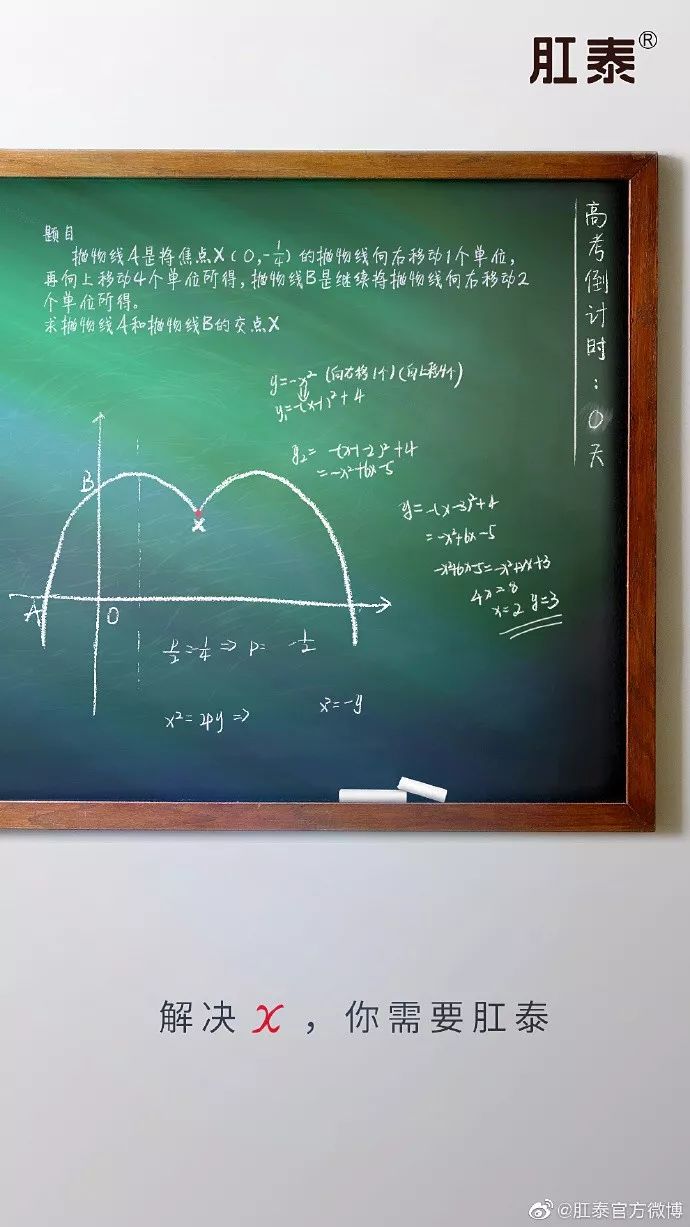 肛泰®
高考倒计时：0天
题目
抛物线A是将焦点X(0,-1/4)的抛物线向右移动1个单位，
再向上移动4个单位所得，抛物线B是继续将抛物线向右移动2
个单位所得。
求抛物线A和抛物线B的交点X
y=-x² (向右移1个)(向上移4个)
y₁=-(x-1)²+4
y₂= -(x-1-2)²+4
=-x²+6x-5
y=-(x-3)²+4
=-x²+6x-5
-x²+6x-5=-x²+2x+3
4x=8
x=2 y=3
B
X
A
O
p/2=-1/4 ⇒ p= -1/2
x²=2py ⇒ x²=-y
解决x，你需要肛泰
@肛泰官方微博